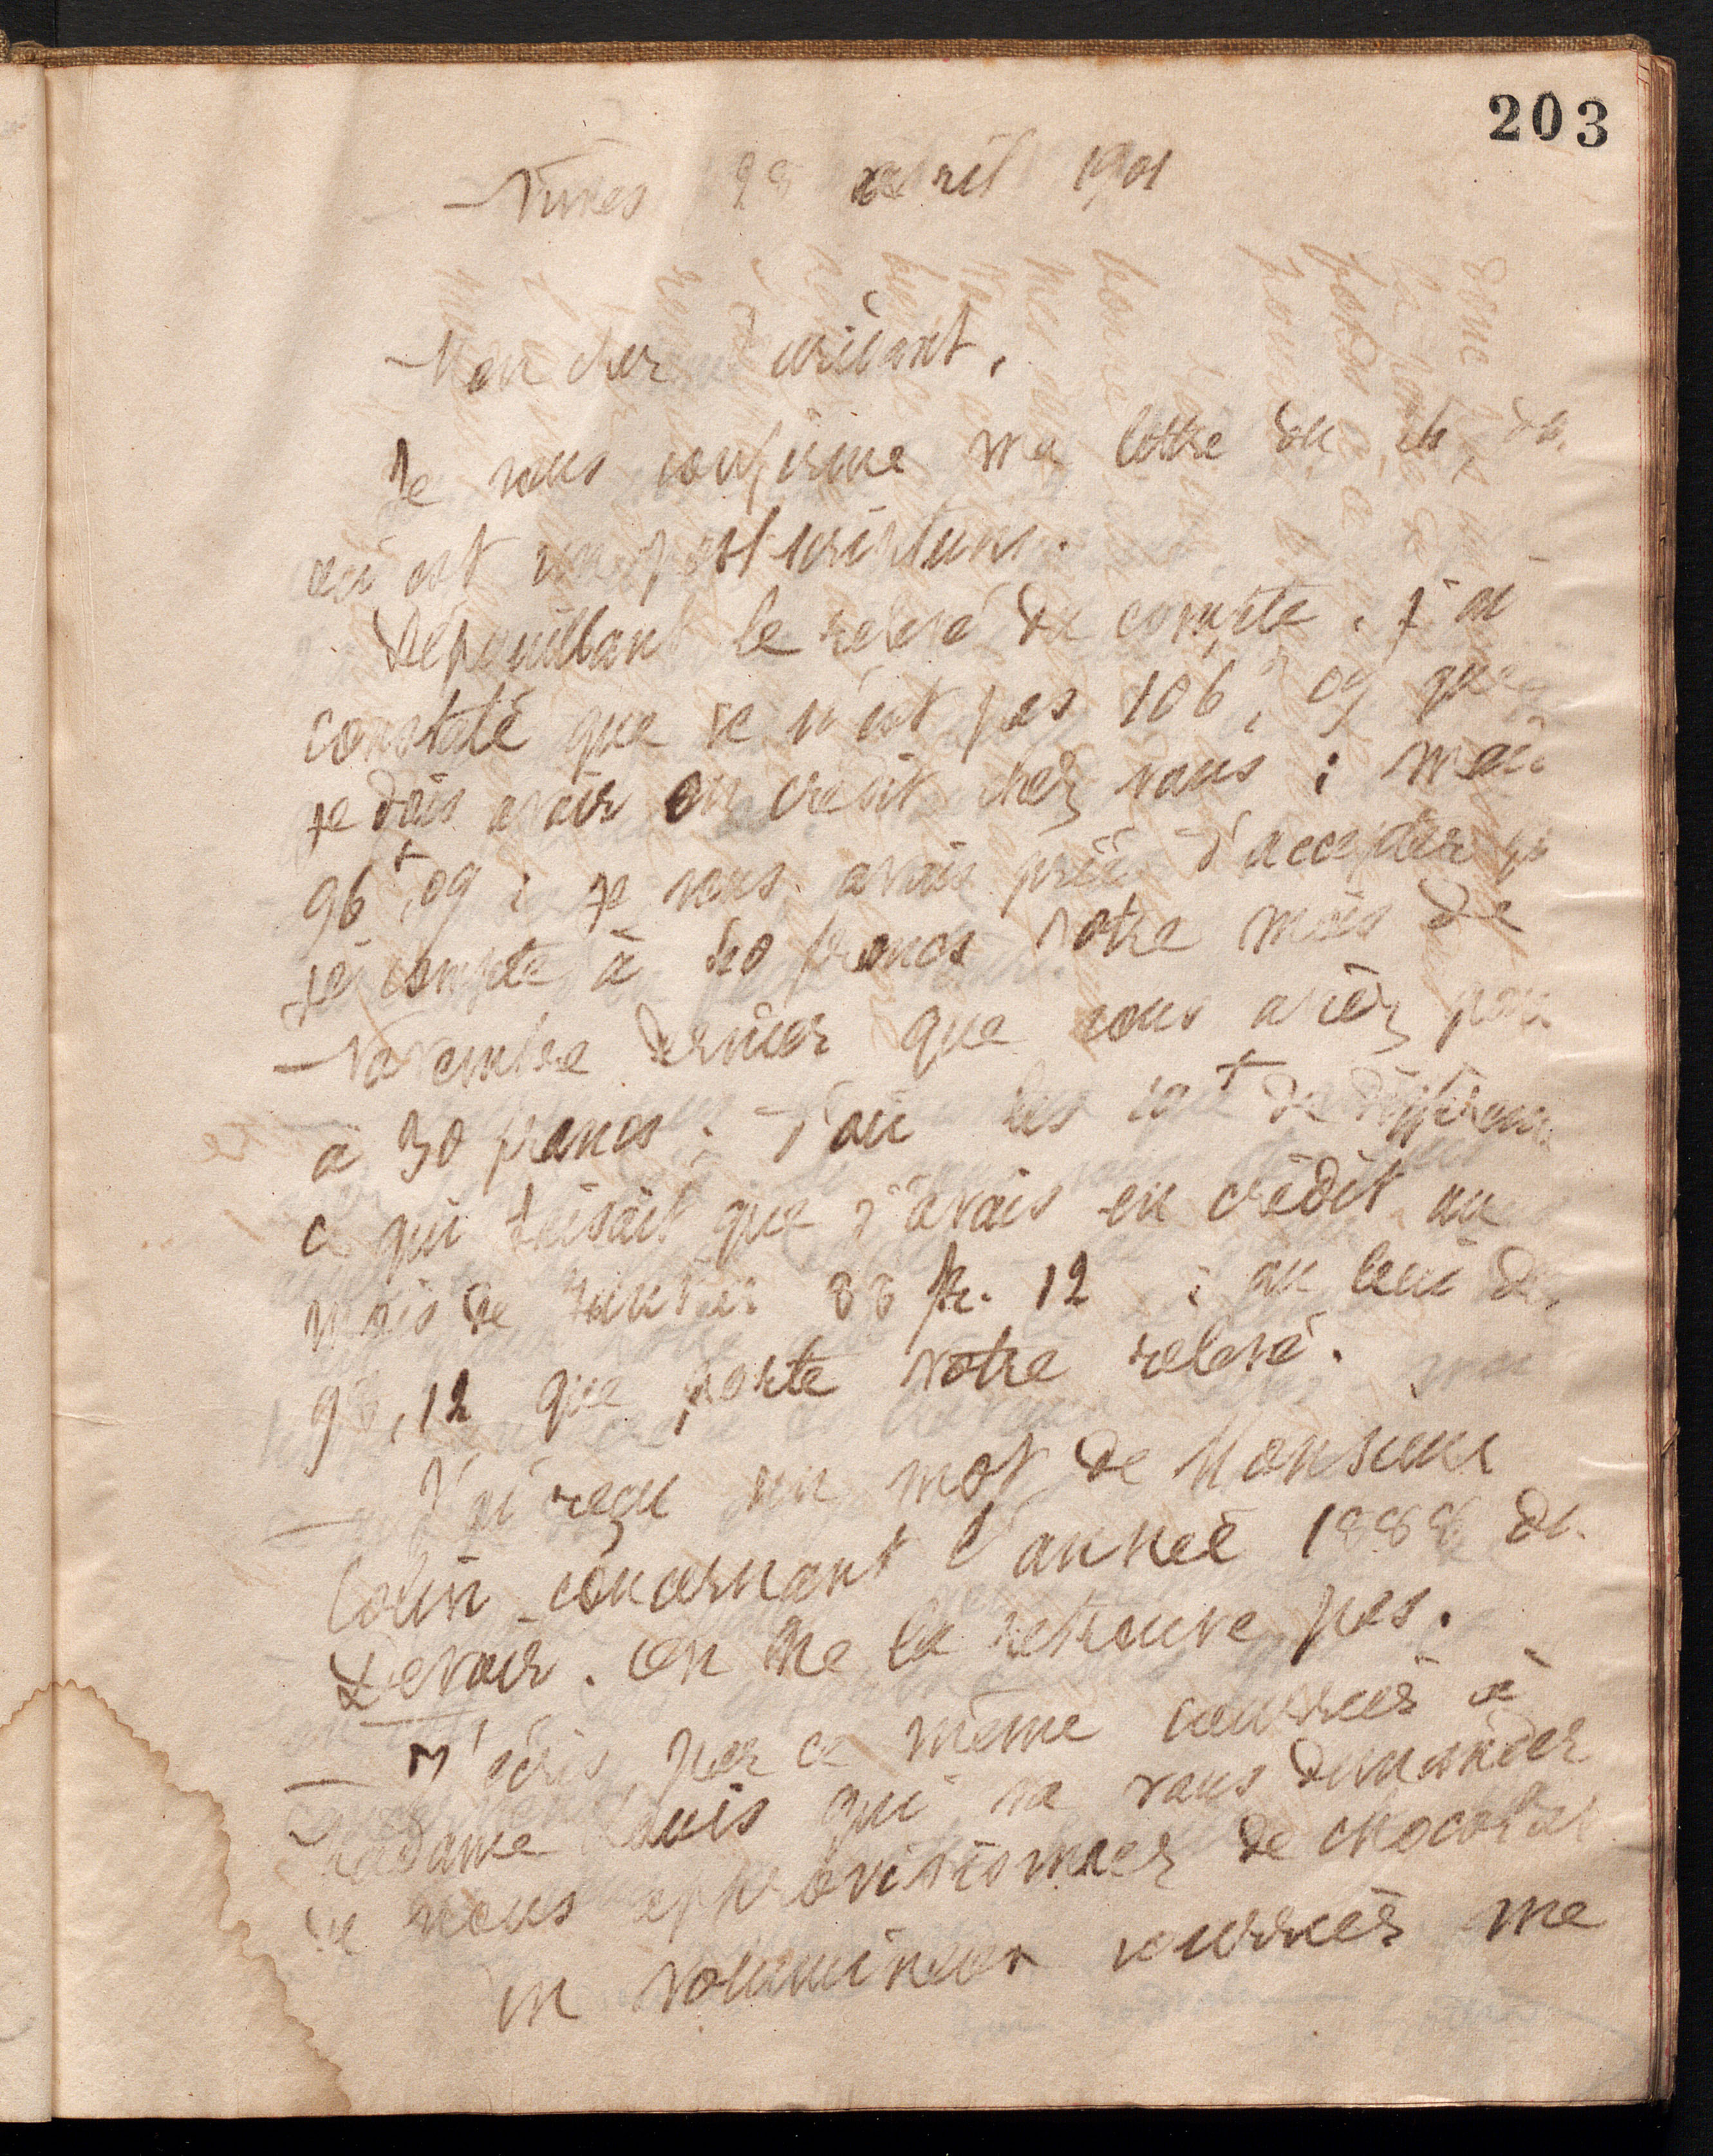 203
Nîmes 28 avril 1901
Mon cher
Je vous confirme ma lettre du
ceci est un post scriptum.
Dépouillant le relevé du compte, j'ai
constaté que ce n'est pas 106f,09 que
je dois avoir en crédit chez vous ; mais
96f,09 ; je vous avais prié d'accepter
compte à 40 francs votre mois de
Novembre dernier que vous aviez
à 30 francs ; d'où les 10f de différence
ce qui faisait que j'avais en crédit au
mois de Janvier 88 fr. 12 ; au lieu de
98,12 que porte votre relevé.
J'ai reçu un mot de Monsieur
Colin concernant l'année 1888 du
Devoir. On ne la retrouve pas.
J'écris par ce même courrier à
Madame Louis qui va vous demander
de nous approvisionner de chocolat
Un volumineux courrier me